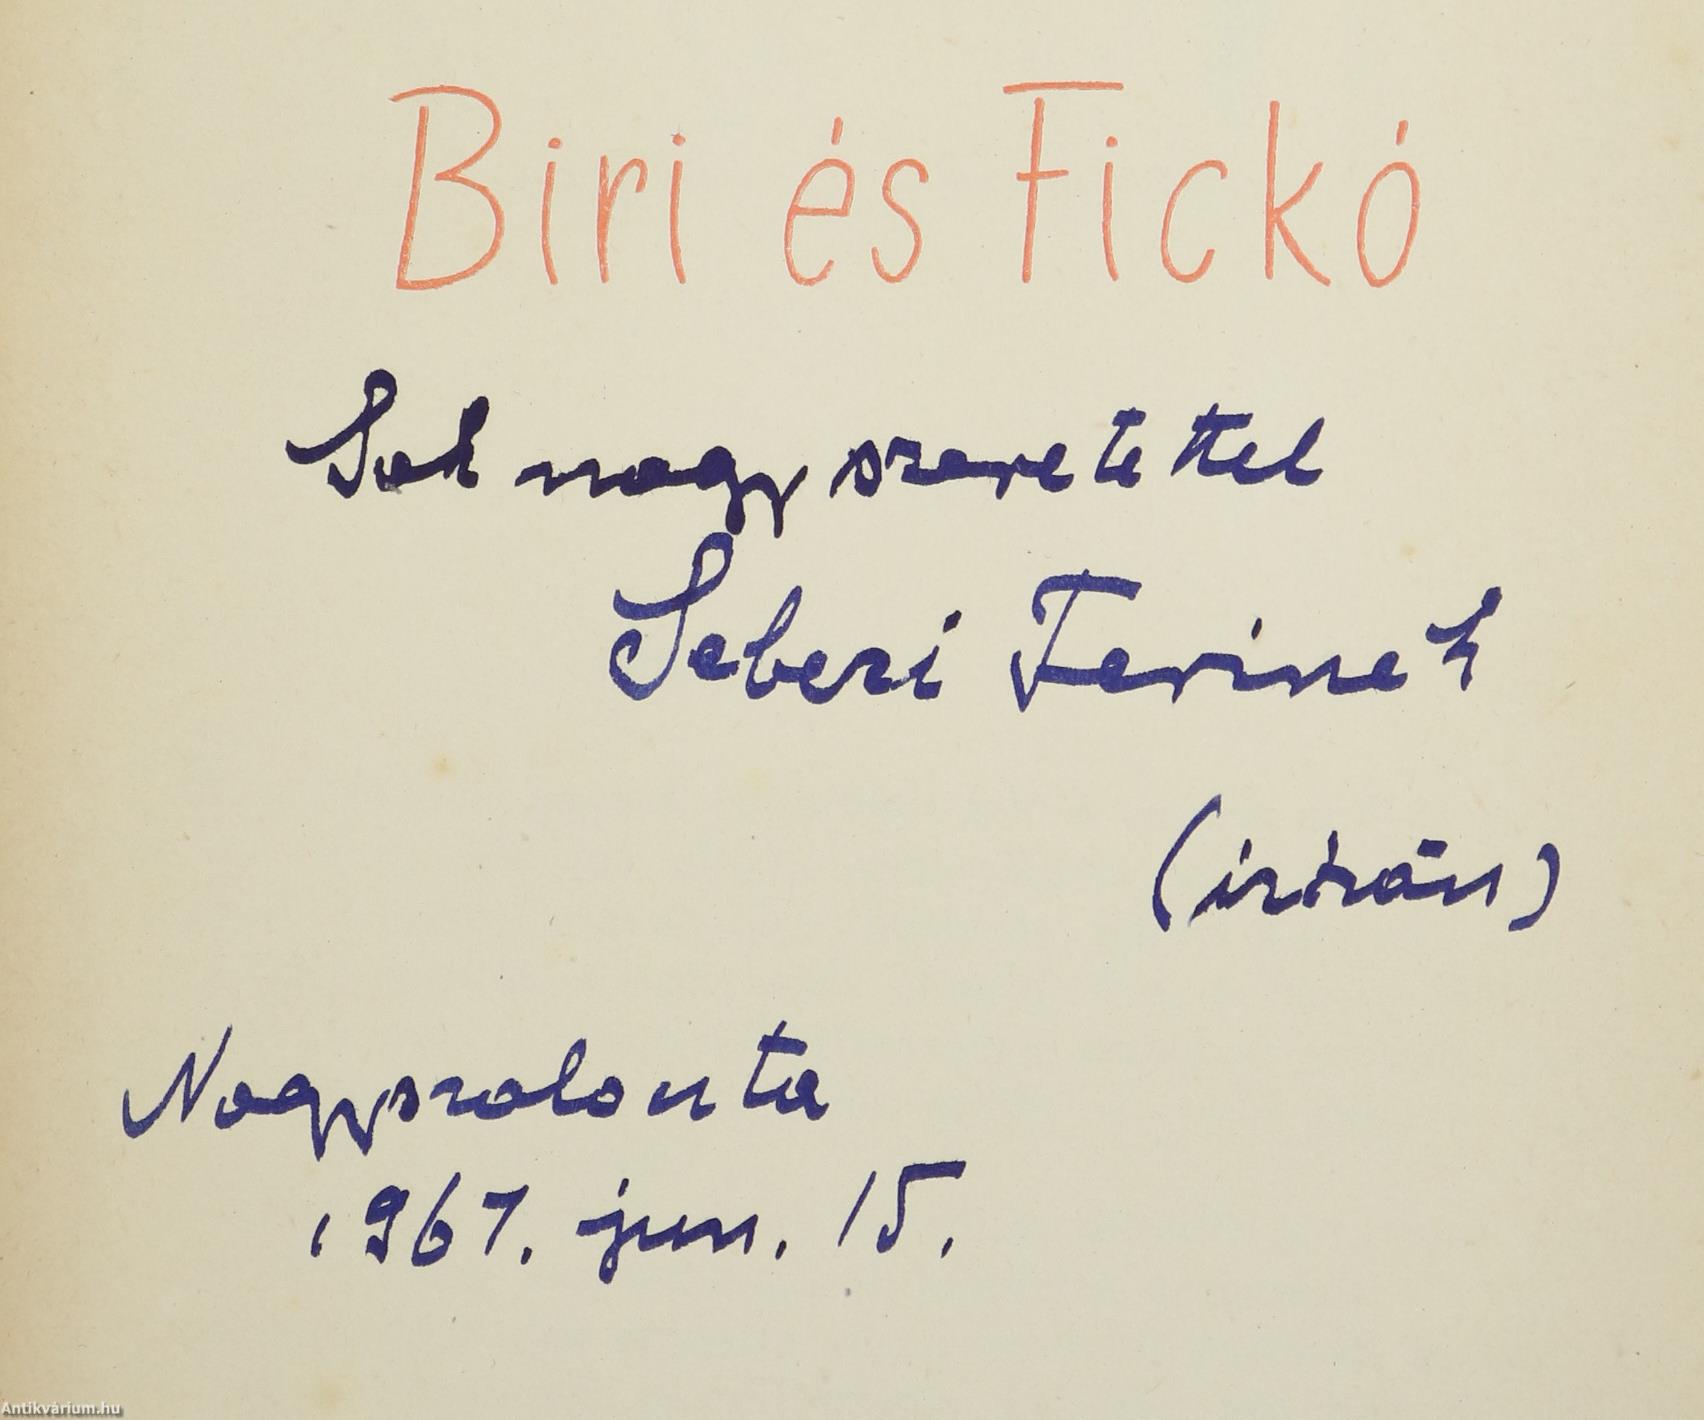 Biri és Fickó
Sok nagy szeretettel
Seberi Ferinek
Nagyszalonta
1967. jun. 15.
Antikvárium.hu